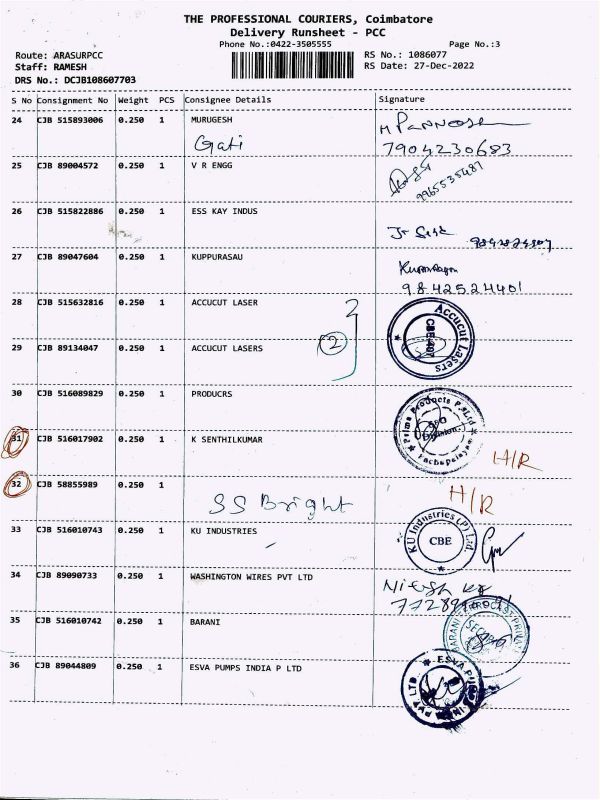 THE PROFESSIONAL COURIERS, Coimbatore
Delivery Runsheet - PCC
Phone No.:0422-3505555 Page No.:3
Route: ARASURPCC RS No.: 1086077
Staff: RAMESH RS Date: 27-Dec-2022
DRS No.: DCJB108607703
S No Consignment No Weight PCS Consignee Details Signature
24 CJB 515893006 0.250 1 MURUGESH
Gati 7904230683
25 CJB 89004572 0.250 1 V R ENGG
9965535487
26 CJB 515822886 0.250 1 ESS KAY INDUS
27 CJB 89047604 0.250 1 KUPPURASAU
9842524401
28 CJB 515632816 0.250 1 ACCUCUT LASER
Accucut Lasers
(2)
29 CJB 89134047 0.250 1 ACCUCUT LASERS
30 CJB 516089829 0.250 1 PRODUCRS
Prime Products P.Ltd
Division
31 CJB 516017902 0.250 1 K SENTHILKUMAR
H/R
32 CJB 58855989 0.250 1
SS Bright H/R
33 CJB 516010743 0.250 1 KU INDUSTRIES
KU Industries (P) Ltd.
CBE
34 CJB 89090733 0.250 1 WASHINGTON WIRES PVT LTD
Nitesh
35 CJB 516010742 0.250 1 BARANI
BARANI
36 CJB 89044809 0.250 1 ESVA PUMPS INDIA P LTD
ESVA PUMPS INDIA PVT LTD